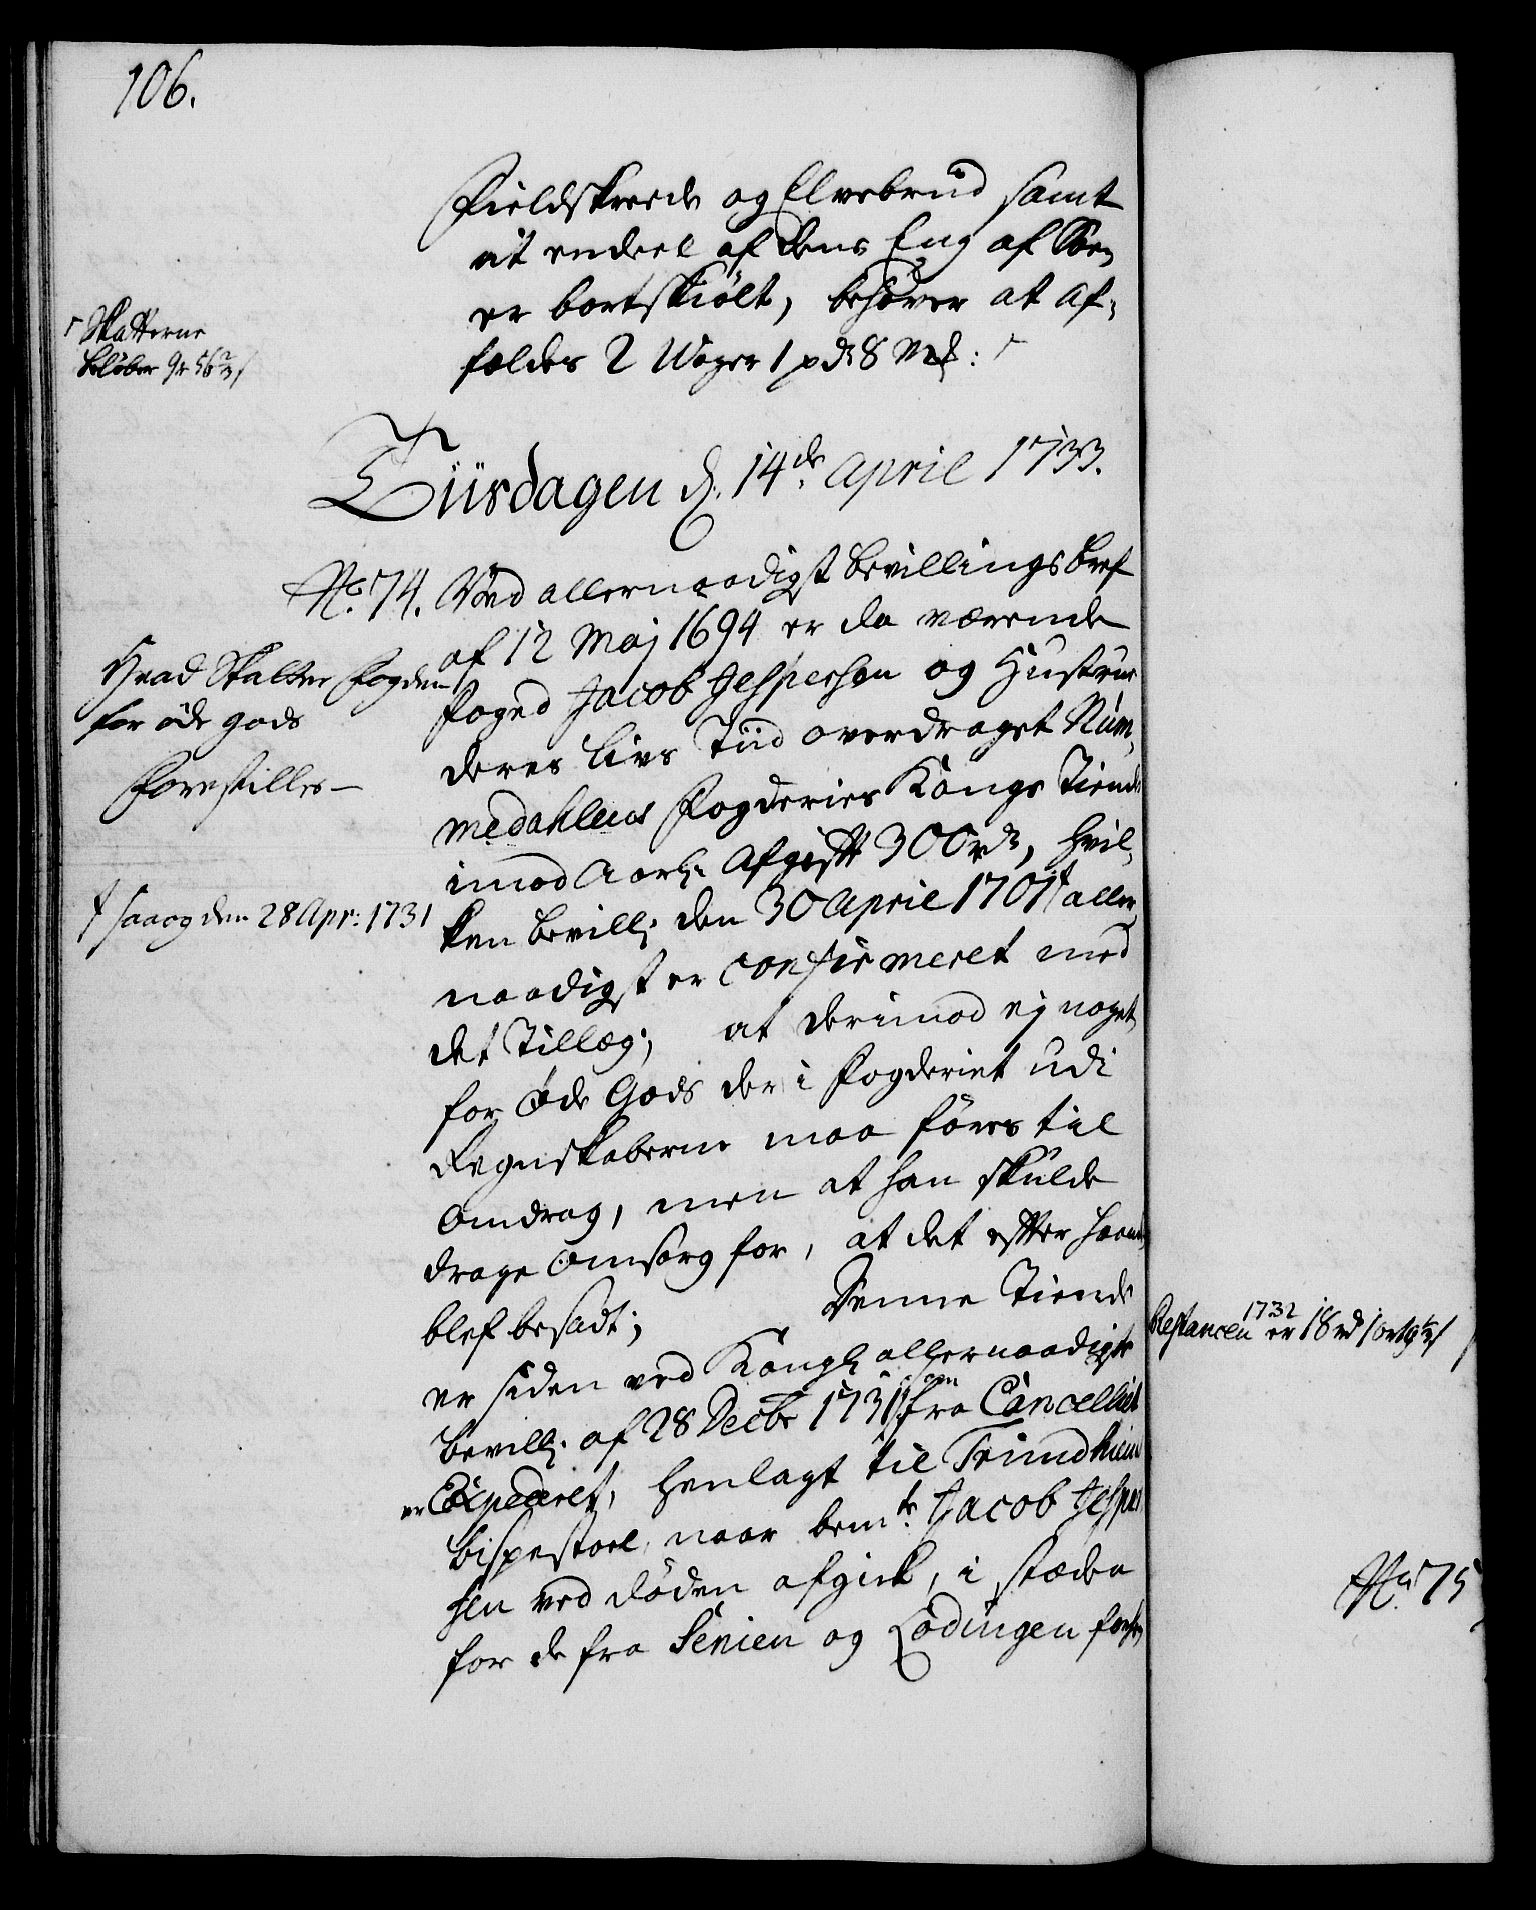 106.
Fieldskreede og Elvebrud samt
at endeel af dens Eng af Søen
er bortskiølt, behøver at af-
fældes 2 Woger 1 pd 8 Mk:
Skatterne
beløber 9r 56 2/3 s
Tiisdagen d. 14de April 1733.
No. 74. Ved allernaadigst bevillings bref
af 12 Maj 1694 er da værende
Foged Jacob Jesperson og Hustrue
deres livs Tiid overdraget Num-
medahlens Fogderies Kongs Tiende
imod Aarl. Afgift 300 rd, hvil-
ken bevill. den 30 April 1701 † aller-
naadigst er confirmeret med
det Tillæg, at derimod ej noget
for Øde Gods der i Fogderiet udi
Regnskaberne maa føres til
Omdrag, men at han skulde
drage Omsorg for, at det efter haand
blef besadt; Denne Tiende
er siden ved Kongl. allernaadigste
bevill. af 28 Decbr 1731, som fra Cancelliet
er Expederet, henlagt til Trundhiems
bispestoel, naar bemte Jacob Jesper
sen ved døden afgick, i stæden
for de fra Senien og Lodingen
Hvad Skatter Fogden
for øde gods
Forestilles
† saa og den 28 Apr: 1731
Restancen 1732 er 18 rd 1 ort
No. 75